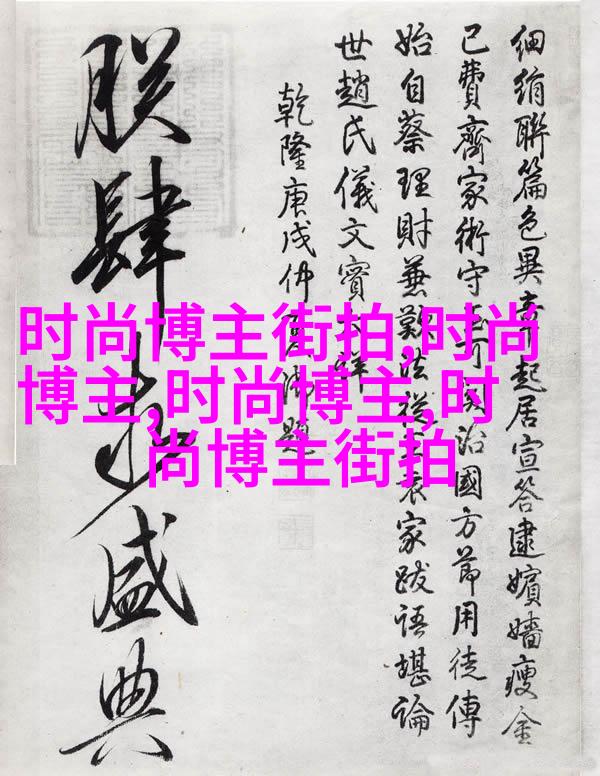 細絹聯篇色異起居宣答逮嬪嬙瘦金
已費齊家術守可笑治國方節用徒傳
始自蔡理財兼法從家跋語堪論
世趙氏儀文賓詳
乾隆庚戌仲夏御題
朕肆盛典
时尚博主街拍,时尚
博主,时尚博主,时
尚博主街拍